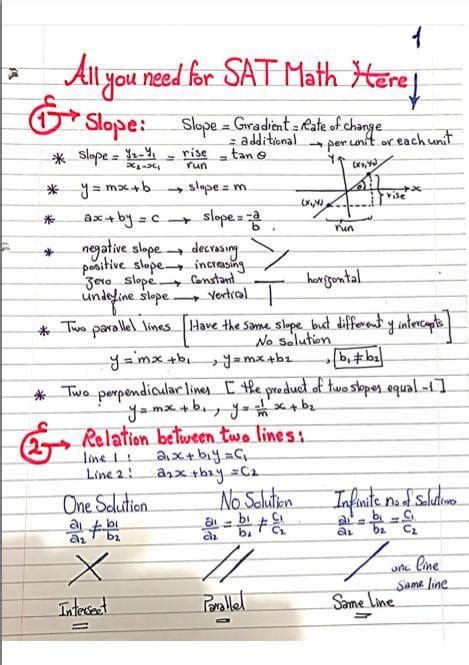 1
All you need for SAT Math Here
1 → Slope: Slope = Gradient = Rate of change
= additional → per unit or each unit
* Slope = y₂-y₁/x₂-x₁ = rise/run = tan θ
y (x₂,y₂)
* y = mx + b → slope = m
θ x rise
(x₁,y₁)
* ax + by = c → slope = -a/b .
run
* negative slope → decrasing
positive slope → increasing
Zero slope → Constant — horizontal
undefine slope → vertical |
* Two parallel lines [Have the same slope but different y intercepts]
No solution
y = mx + b₁ , y = mx + b₂ , b₁ ≠ b₂
* Two perpendicular lines [ the product of two slopes equal -1 ]
y = mx + b₁ , y = -1/m x + b₂
2 → Relation between two lines:
line 1 : a₁x + b₁y = C₁
Line 2 : a₂x + b₂y = C₂
One Solution No Solution Infinite no of solutions
a₁/a₂ ≠ b₁/b₂ a₁/a₂ = b₁/b₂ ≠ C₁/C₂ a₁/a₂ = b₁/b₂ = C₁/C₂
one line
same line
Intersect Parallel Same Line